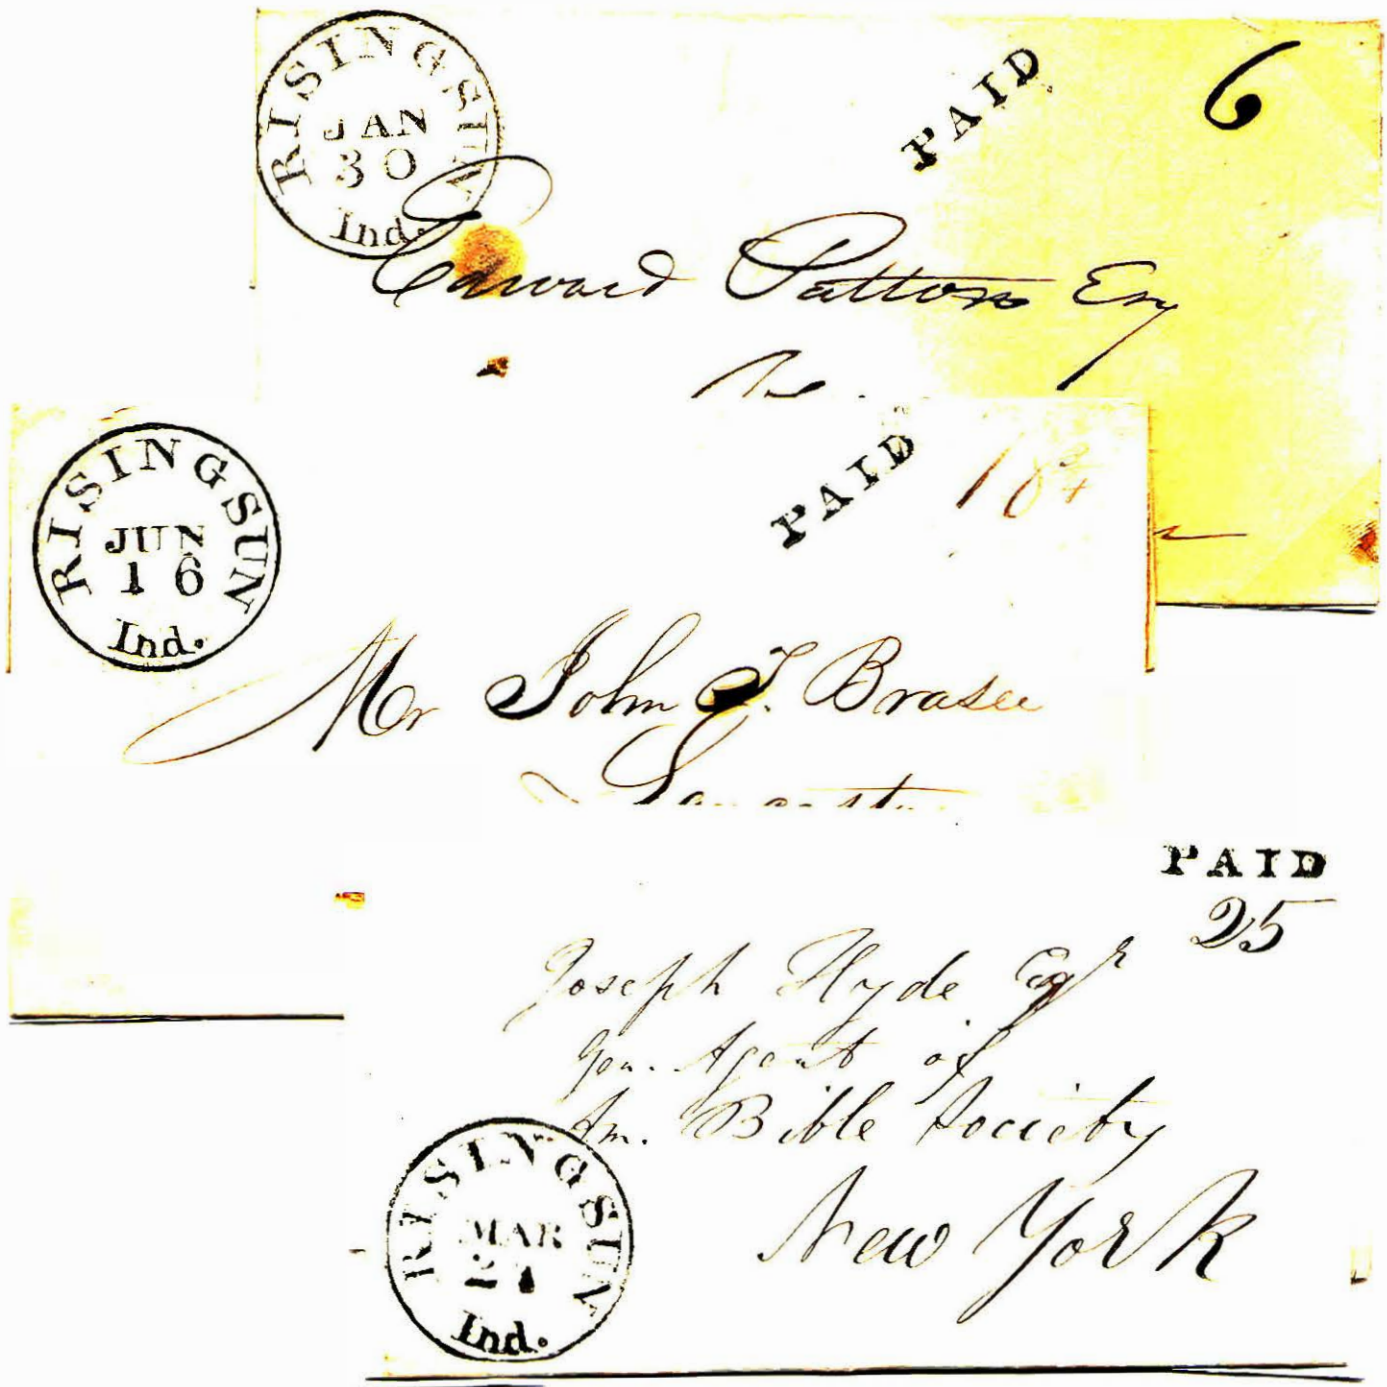 RISING SUN
JAN
30
Ind.
PAID
6
Edward Patton Esq
RISING SUN
JUN
16
Ind.
PAID
18 3/4
Mr John T. Brasee
Lancaster
PAID
25
Joseph Hyde Esqr
Gen. Agent of
Am. Bible Society
New York
RISING SUN
MAR
Ind.